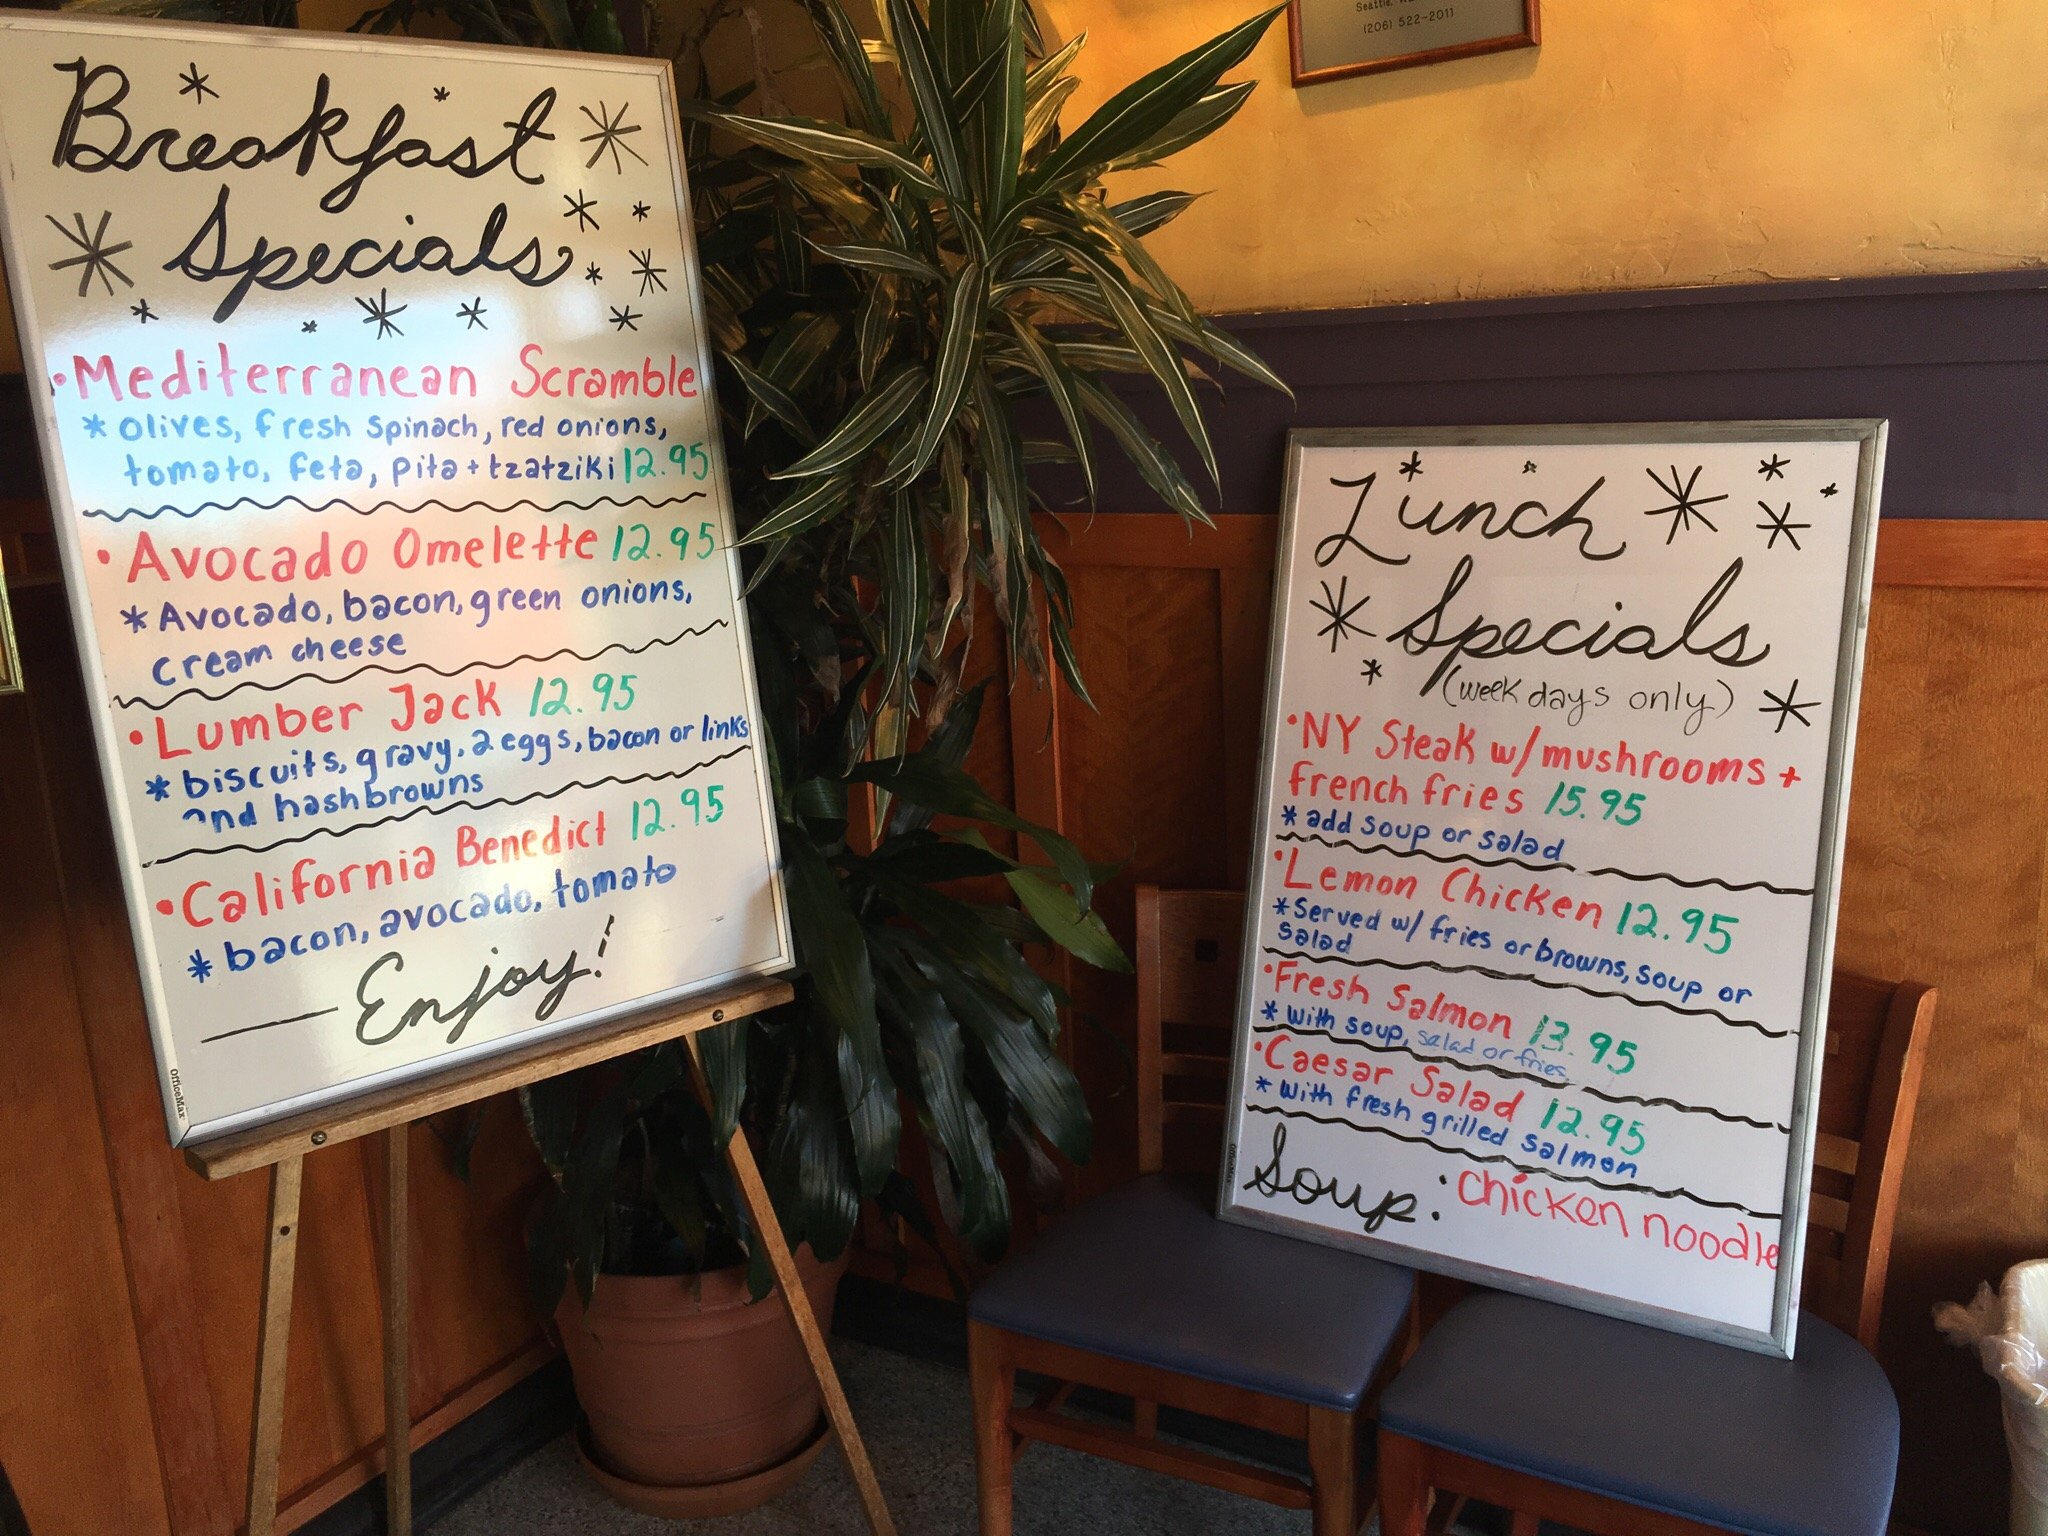 Breakfast
Specials
• Mediterranean Scramble
* olives, fresh spinach, red onions,
tomato, feta, pita + tzatziki 12.95
• Avocado Omelette 12.95
* Avocado, bacon, green onions,
cream cheese
• Lumber Jack 12.95
* biscuits, gravy, 2 eggs, bacon or links
and hashbrowns
• California Benedict 12.95
* bacon, avocado, tomato
Enjoy!
OfficeMax
Seattle,
(206) 522-2011
Lunch
Specials
(weekdays only)
• NY Steak w/mushrooms +
french fries 15.95
* add soup or salad
• Lemon Chicken 12.95
* Served w/ fries or browns, soup or
salad
• Fresh Salmon 13.95
* with soup, salad or fries
• Caesar Salad 12.95
* with fresh grilled salmon
Soup: chicken noodle